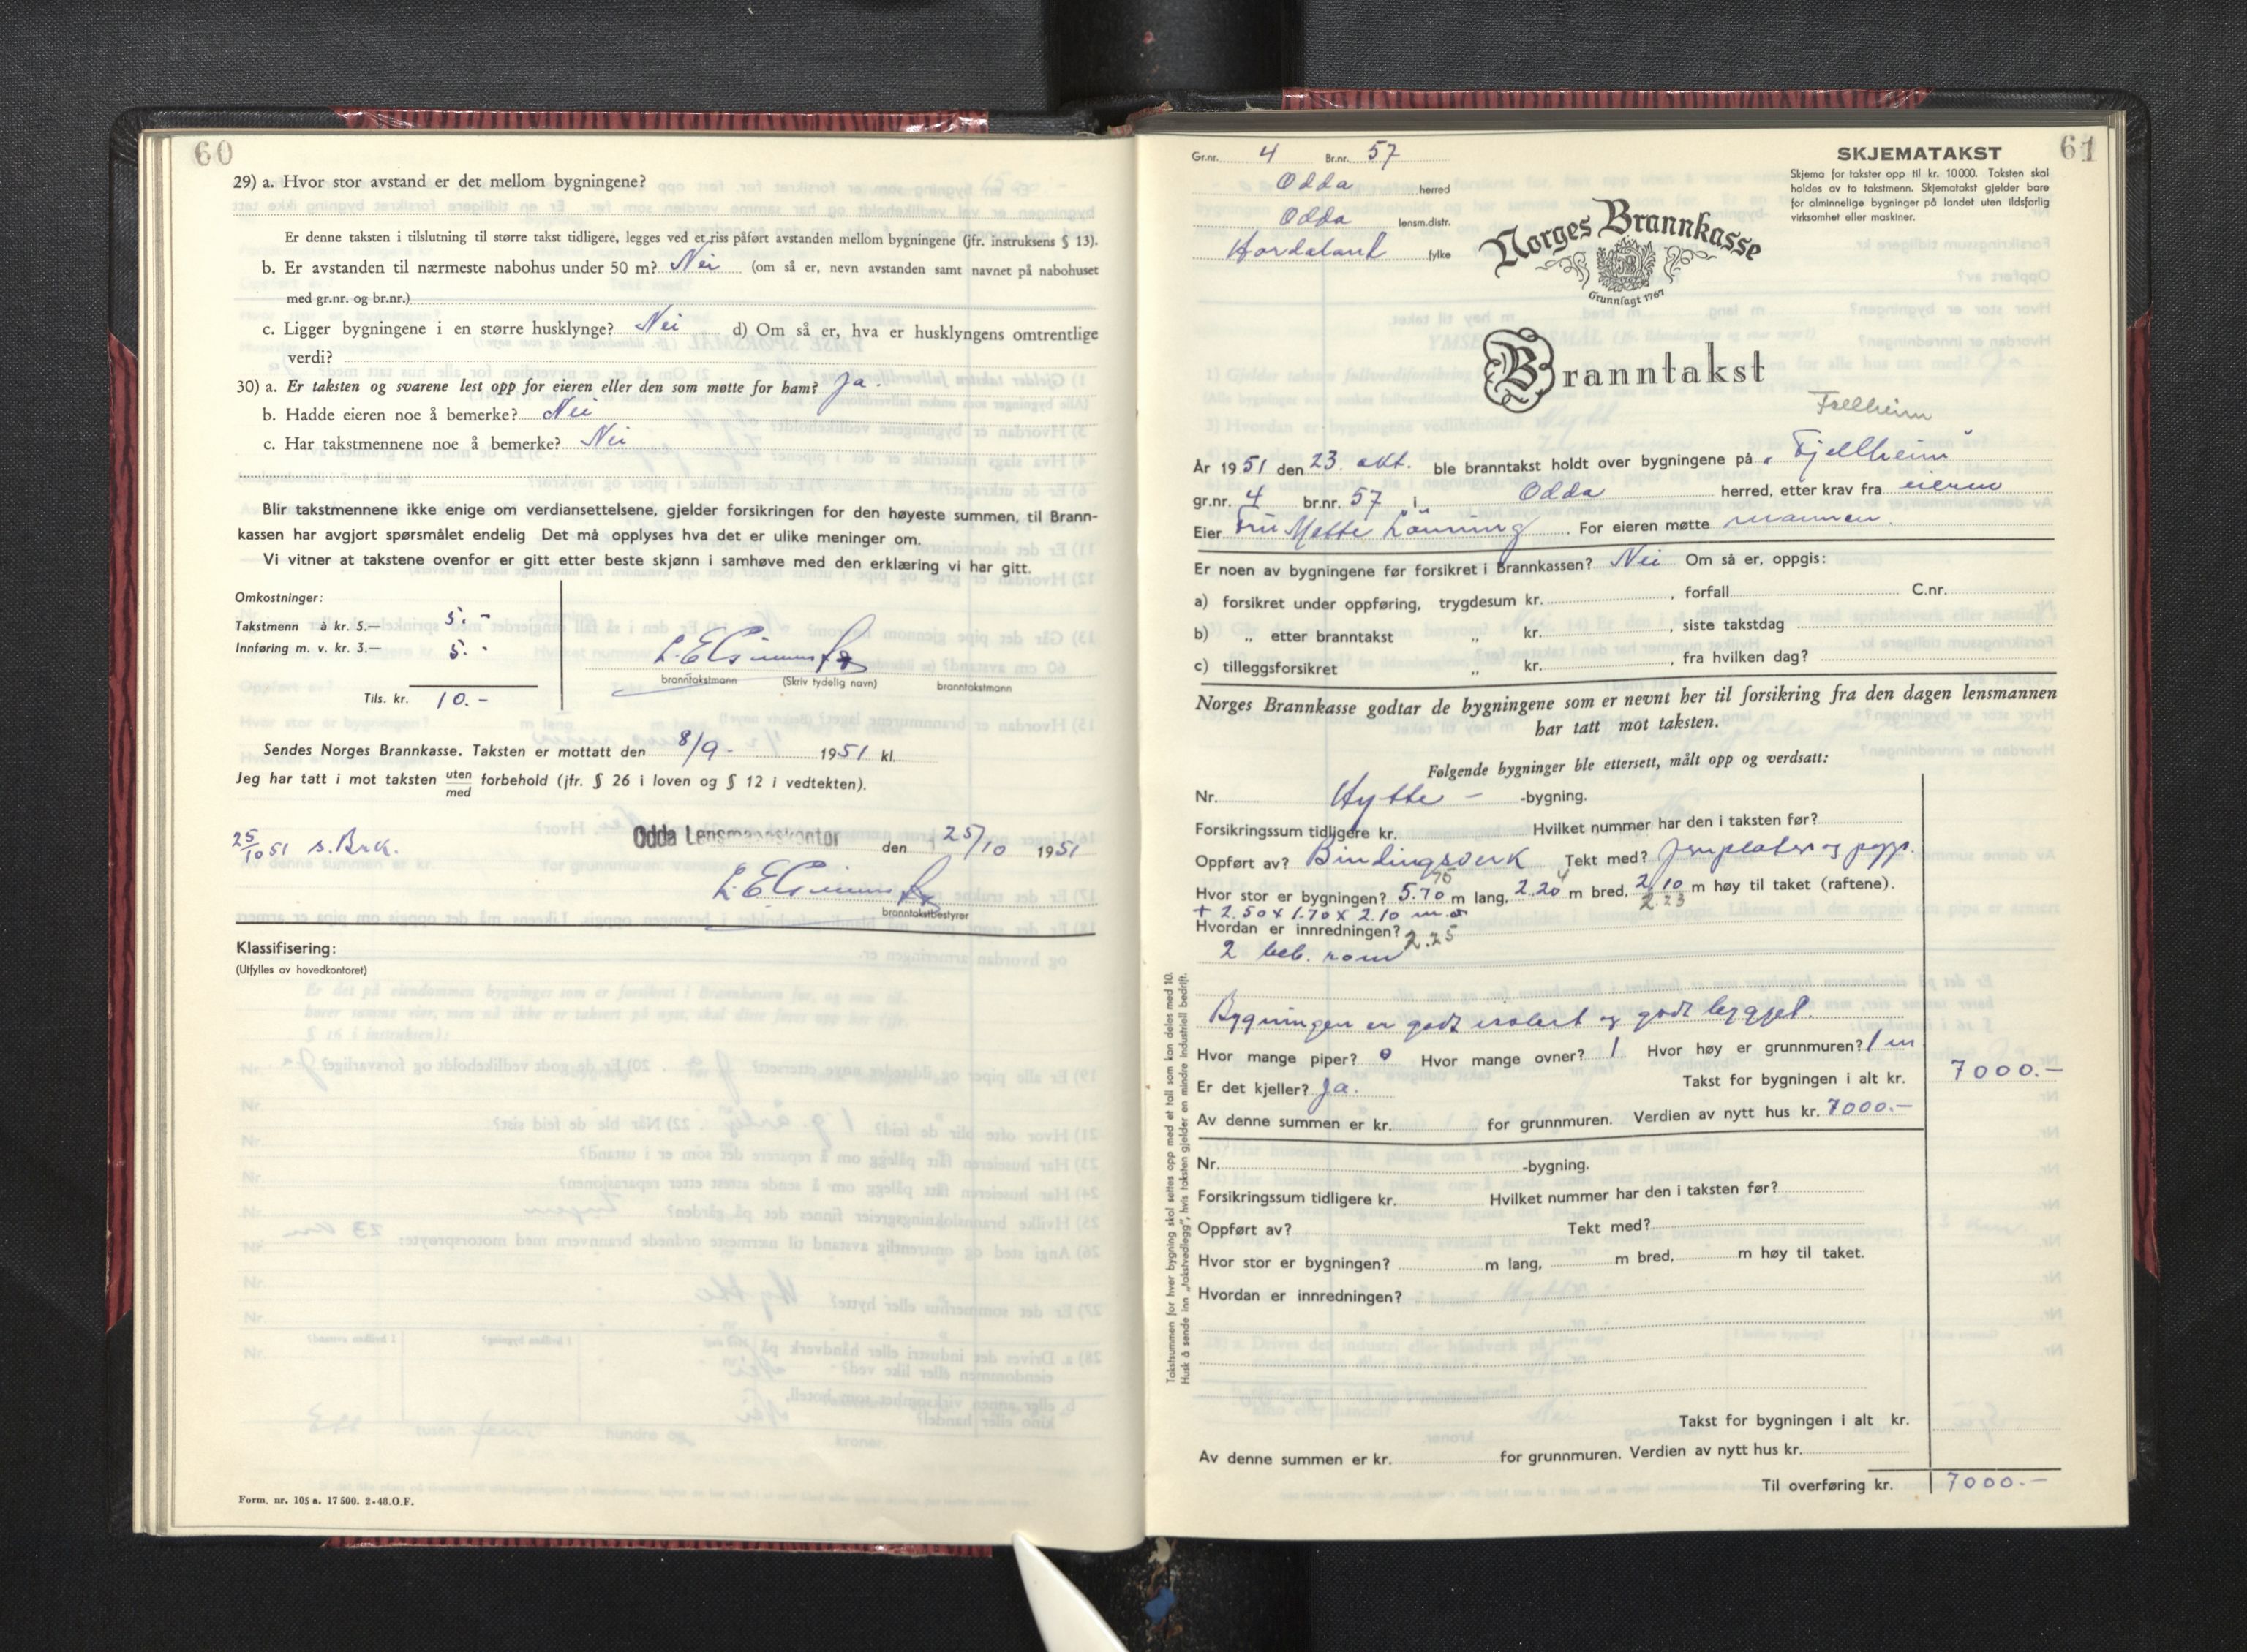 60
29) a. Hvor stor avstand er det mellom bygningene?
Er denne taksten i tilslutning til større takst tidligere, legges ved et riss påført avstanden mellom bygningene (jfr. instruksens § 13).
b. Er avstanden til nærmeste nabohus under 50 m? Nei (om så er, nevn avstanden samt navnet på nabohuset
med gr.nr. og br.nr.)
c. Ligger bygningene i en større husklynge? Nei d) Om så er, hva er husklyngens omtrentlige
verdi?
30) a. Er taksten og svarene lest opp for eieren eller den som møtte for ham? Ja.
b. Hadde eieren noe å bemerke? Nei
c. Har takstmennene noe å bemerke? Nei
Blir takstmennene ikke enige om verdiansettelsene, gjelder forsikringen for den høyeste summen, til Brann-
kassen har avgjort spørsmålet endelig Det må opplyses hva det er ulike meninger om.
Vi vitner at takstene ovenfor er gitt etter beste skjønn i samhøve med den erklæring vi har gitt.
Omkostninger:
Takstmenn å kr. 5.— 5.-
Innføring m. v. kr. 3.— 5.-
Tils. kr. 10.-
branntakstmann (Skriv tydelig navn) branntakstmann
Sendes Norges Brannkasse. Taksten er mottatt den 8/9- 1951 kl.
Jeg har tatt i mot taksten uten/med forbehold (jfr. § 26 i loven og § 12 i vedtekten).
25/10 51 s. Brk.
Odda Lensmannskontor den 25/10 1951
branntakstbestyrer
Klassifisering:
(Utfylles av hovedkontoret)
Form. nr. 105 a. 17 500. 2-48.O.F.
61
Gr.nr. 4 Br.nr. 57
Odda herred
Odda lensm.distr.
Hordaland fylke
SKJEMATAKST
Skjema for takster opp til kr. 10000. Taksten skal
holdes av to takstmenn. Skjematakst gjelder bare
for alminnelige bygninger på landet uten ildsfarlig
virksomhet eller maskiner.
Norges Brannkasse
Grunnlagt 1767
Branntakst
År 1951 den 23. okt. ble branntakst holdt over bygningene på "Fjellheim"
gr.nr. 4 br.nr. 57 i Odda herred, etter krav fra eieren
Eier Fru Mette Lönning. For eieren møtte mannen.
Er noen av bygningene før forsikret i Brannkassen? Nei Om så er, oppgis:
a) forsikret under oppføring, trygdesum kr. , forfall C.nr.
b) „ etter branntakst „ kr. , siste takstdag
c) tilleggsforsikret „ kr. , fra hvilken dag?
Norges Brannkasse godtar de bygningene som er nevnt her til forsikring fra den dagen lensmannen
har tatt mot taksten.
Følgende bygninger ble ettersett, målt opp og verdsatt:
Nr. Hytte - -bygning.
Forsikringssum tidligere kr. Hvilket nummer har den i taksten før?
Oppført av? Bindingsverk Tekt med? Jernplater og papp.
Hvor stor er bygningen? 5.70 m lang, 2.20 m bred, 2.10 m høy til taket (raftene).
2.23
+ 2.50 x 1.70 x 2.10
Hvordan er innredningen? 2.25
2 beb. rom
Bygningen er godt isolert og godt bygget.
Hvor mange piper? 0 Hvor mange ovner? 1 Hvor høy er grunnmuren? 1 m
Er det kjeller? Ja. Takst for bygningen i alt kr. 7000.-
Av denne summen er kr. for grunnmuren. Verdien av nytt hus kr. 7000.-
Nr. -bygning.
Forsikringssum tidligere kr. Hvilket nummer har den i taksten før?
Oppført av? Tekt med?
Hvor stor er bygningen? m lang, m bred, m høy til taket.
Hvordan er innredningen?
Takst for bygningen i alt kr.
Av denne summen er kr. for grunnmuren. Verdien av nytt hus kr.
Til overføring kr. 7000.-
Takstsummen for hver bygning skal settes opp med et tall som kan deles med 10.
Husk å sende inn „takstvedlegg", hvis taksten gjelder en mindre industriell bedrift.